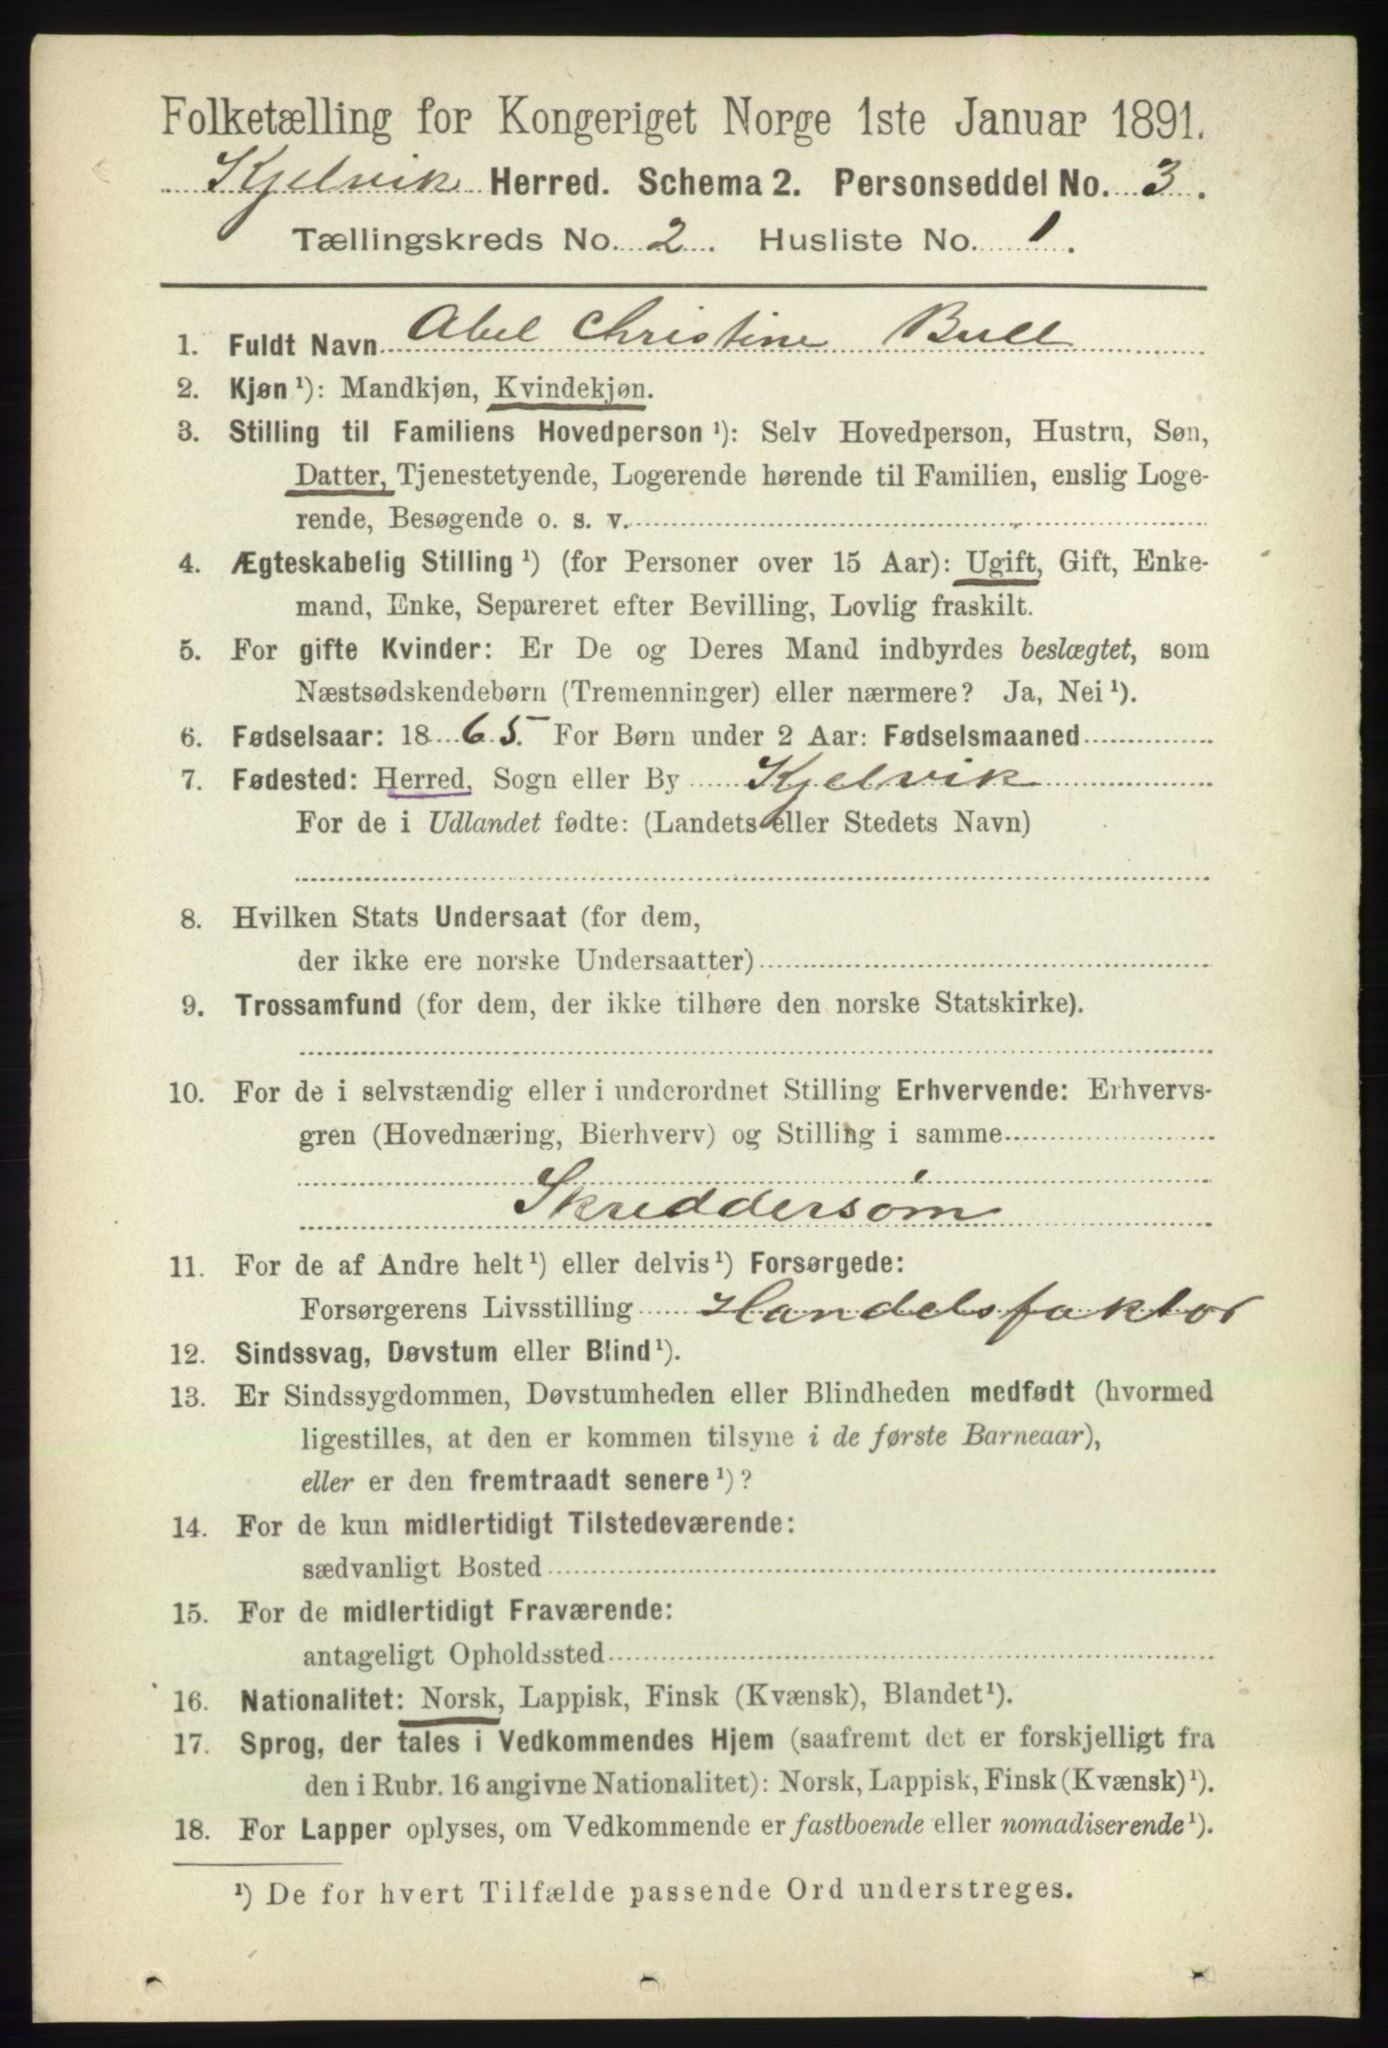 Folketælling for Kongeriget Norge 1ste Januar 1891.
Kjelvik Herred. Schema 2. Personseddel No. 3.
Tællingskreds No. 2. Husliste No. 1.
1. Fuldt Navn Abel Christine Bull
2. Kjøn ¹): Mandkjøn, Kvindekjøn.
3. Stilling til Familiens Hovedperson ¹): Selv Hovedperson, Hustru, Søn,
Datter, Tjenestetyende, Logerende hørende til Familien, enslig Loge-
rende, Besøgende o. s. v.
4. Ægteskabelig Stilling ¹) (for Personer over 15 Aar): Ugift, Gift, Enke-
mand, Enke, Separeret efter Bevilling, Lovlig fraskilt.
5. For gifte Kvinder: Er De og Deres Mand indbyrdes beslægtet, som
Næstsødskendebørn (Tremenninger) eller nærmere? Ja, Nei ¹).
6. Fødselsaar: 1865. For Børn under 2 Aar: Fødselsmaaned
7. Fødested: Herred, Sogn eller By Kjelvik
For de i Udlandet fødte: (Landets eller Stedets Navn)
8. Hvilken Stats Undersaat (for dem,
der ikke ere norske Undersaatter)
9. Trossamfund (for dem, der ikke tilhøre den norske Statskirke).
10. For de i selvstændig eller i underordnet Stilling Erhvervende: Erhvervs-
gren (Hovednæring, Bierhverv) og Stilling i samme
Skreddersøm
11. For de af Andre helt ¹) eller delvis ¹) Forsørgede:
Forsørgerens Livsstilling Handelsfaktor
12. Sindssvag, Døvstum eller Blind ¹).
13. Er Sindssygdommen, Døvstumheden eller Blindheden medfødt (hvormed
ligestilles, at den er kommen tilsyne i de første Barneaar),
eller er den fremtraadt senere ¹)?
14. For de kun midlertidigt Tilstedeværende:
sædvanligt Bosted
15. For de midlertidigt Fraværende:
antageligt Opholdssted
16. Nationalitet: Norsk, Lappisk, Finsk (Kvænsk), Blandet ¹).
17. Sprog, der tales i Vedkommendes Hjem (saafremt det er forskjelligt fra
den i Rubr. 16 angivne Nationalitet): Norsk, Lappisk, Finsk (Kvænsk) ¹).
18. For Lapper oplyses, om Vedkommende er fastboende eller nomadiserende ¹).
¹) De for hvert Tilfælde passende Ord understreges.